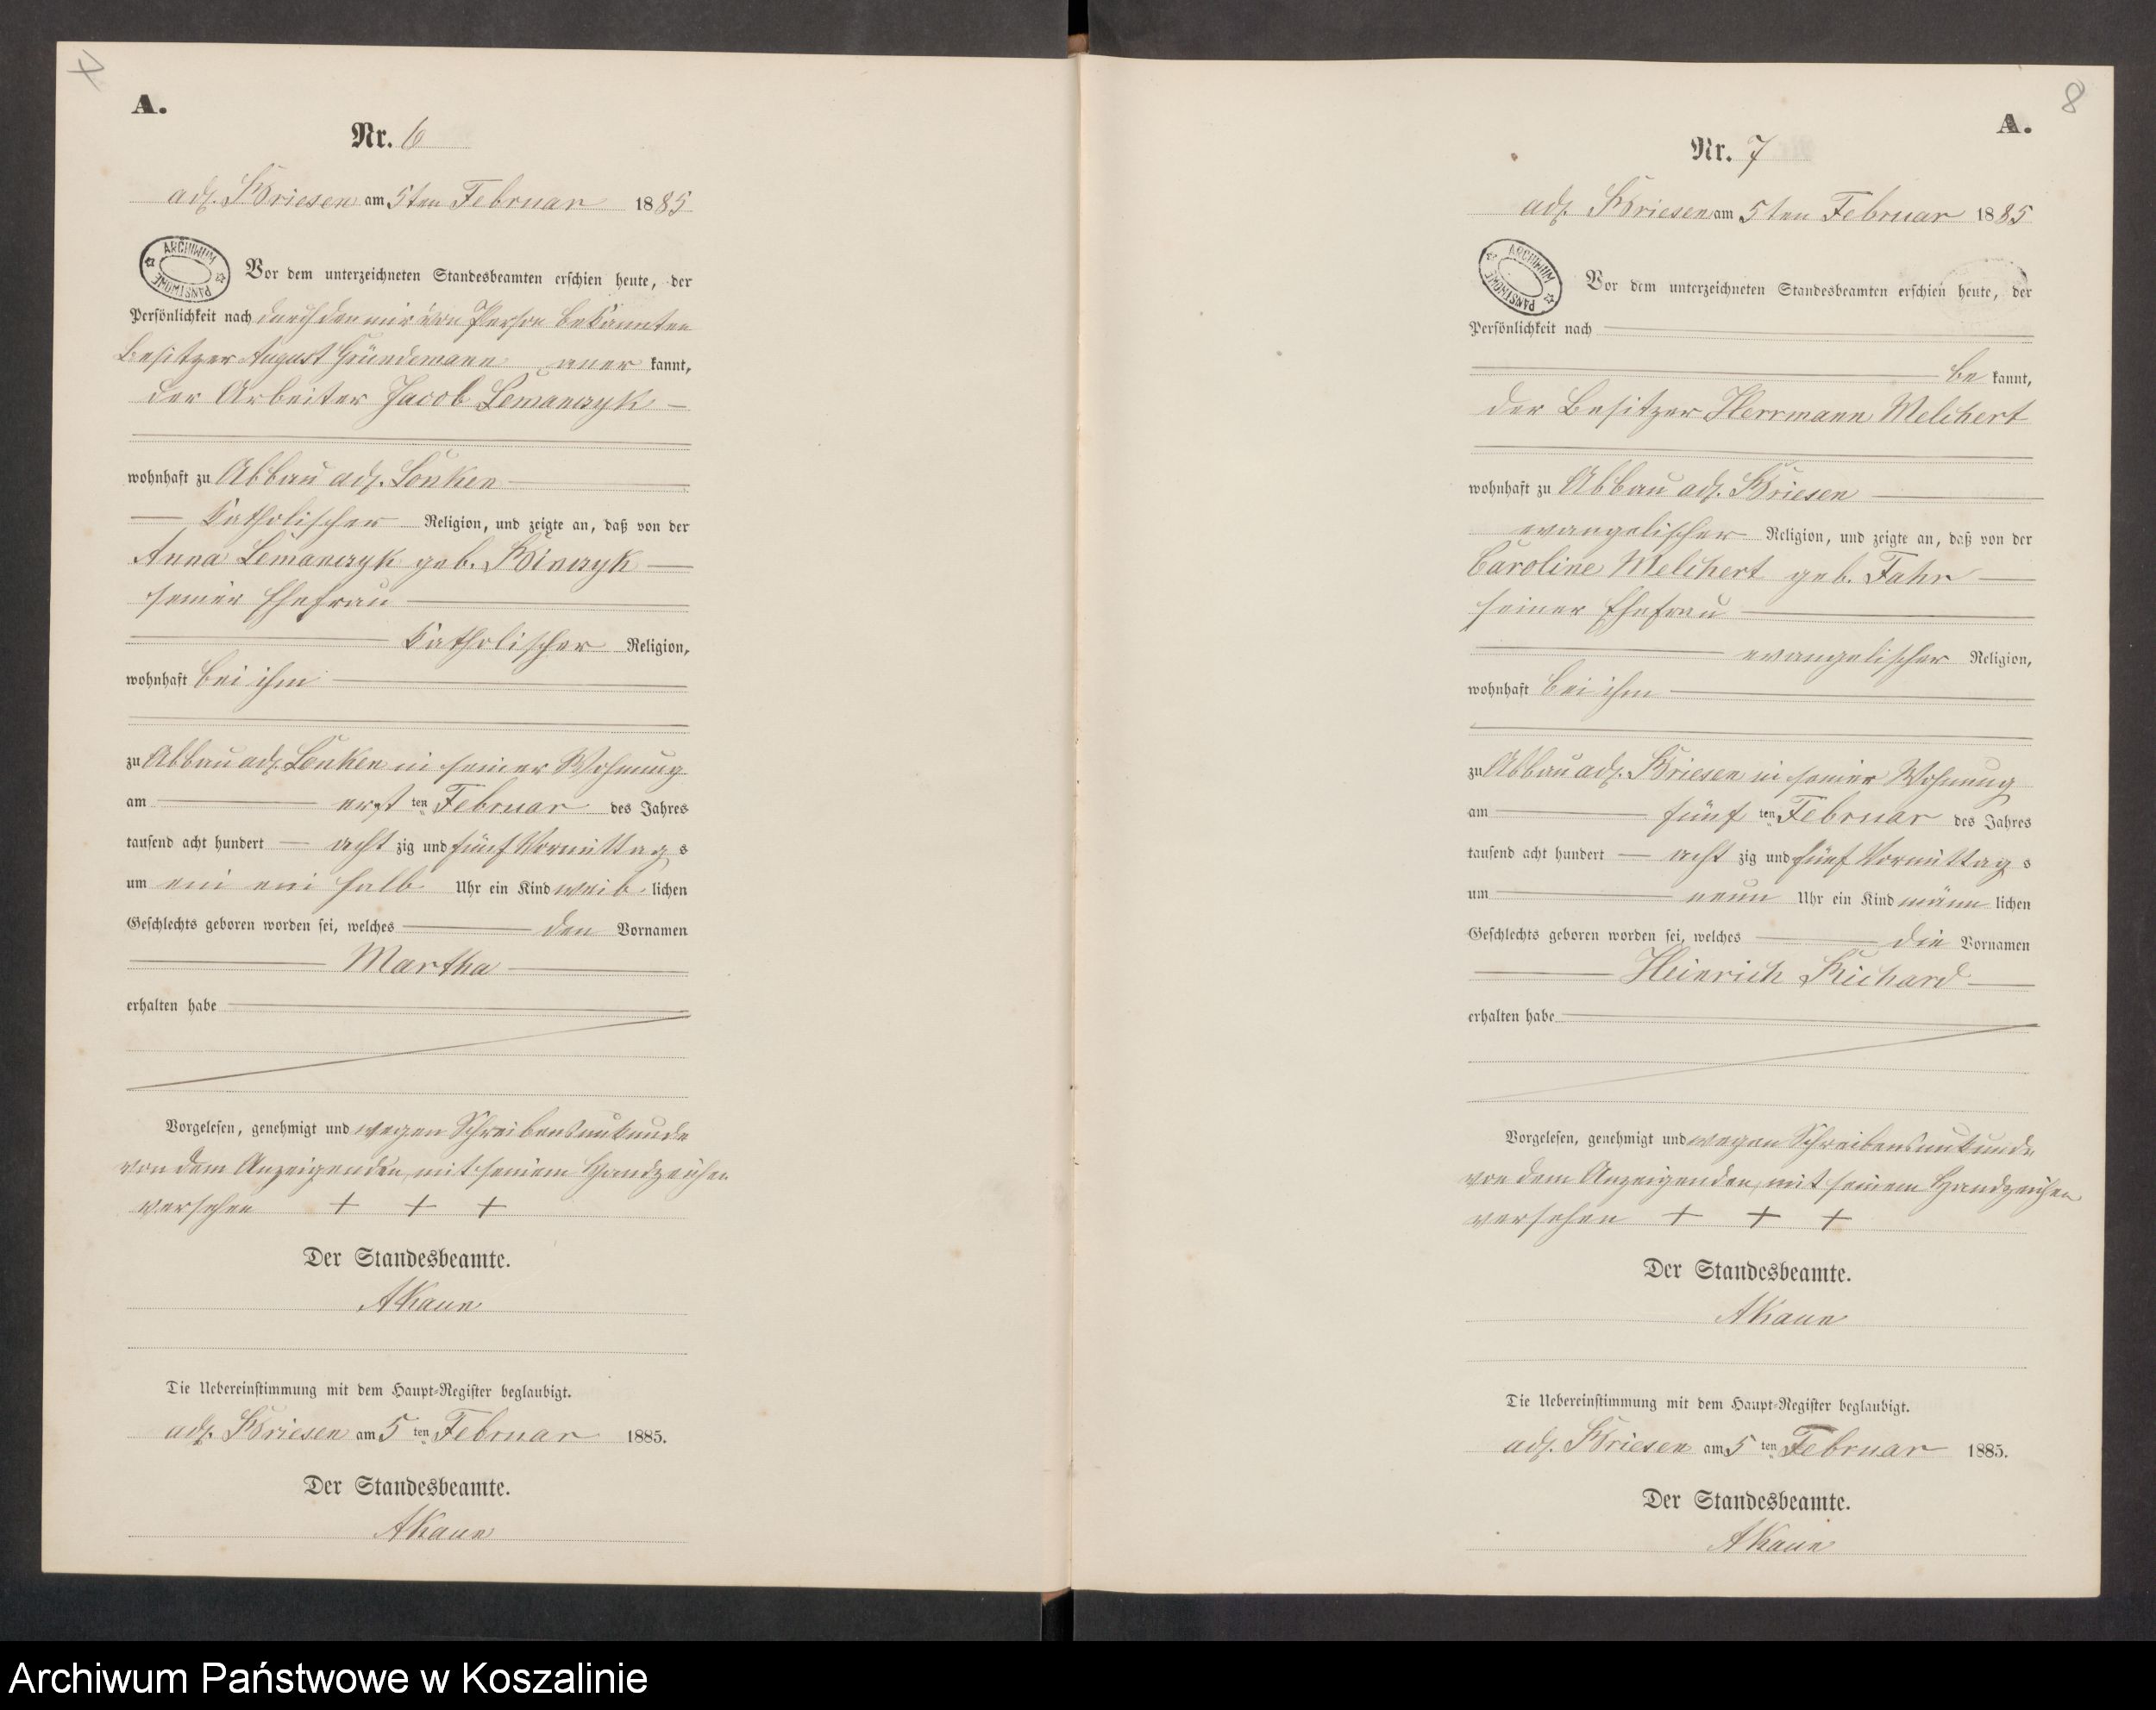 A.
Nr. 6
adl. Briesen am 5ten Februar 1885
ARCHIWUM PAŃSTWOWE
Vor dem unterzeichneten Standesbeamten erschien heute, der
Persönlichkeit nach durch den mir von Person bekannten
Besitzer August Gründemann aner kannt,
der Arbeiter Jacob Lemanczyk
wohnhaft zu Abbau adl. Lonken
katholischer Religion, und zeigte an, daß von der
Anna Lemanczyk geb.
seiner Ehefrau
katholischer Religion,
wohnhaft bei ihm
zu Abbau adl. Lonken in seiner Wohnung
am erst ten Februar des Jahres
tausend acht hundert acht zig und fünf Vormittag s
um ein ein halb Uhr ein Kind weib lichen
Geschlechts geboren worden sei, welches den Vornamen
Martha
erhalten habe
Vorgelesen, genehmigt und wegen Schreibensunkunde
von dem Anzeigenden, mit seinem Handzeichen
versehen + + +
Der Standesbeamte.
AKaun
Die Uebereinstimmung mit dem Haupt-Register beglaubigt.
adl. Briesen am 5 ten Februar 1885.
Der Standesbeamte.
AKaun
8
A.
Nr. 7
adl. Briesen am 5ten Februar 1885
ARCHIWUM PAŃSTWOWE
Vor dem unterzeichneten Standesbeamten erschien heute, der
Persönlichkeit nach
be kannt,
der Besitzer Herrmann Melchert
wohnhaft zu Abbau adl. Briesen
evangelischer Religion, und zeigte an, daß von der
Caroline Melchert geb. Fahr
seiner Ehefrau
evangelischer Religion,
wohnhaft bei ihm
zu Abbau adl. Briesen in seiner Wohnung
am fünf ten Februar des Jahres
tausend acht hundert acht zig und fünf Vormittag s
um neun Uhr ein Kind männ lichen
Geschlechts geboren worden sei, welches die Vornamen
Heinrich Richard
erhalten habe
Vorgelesen, genehmigt und wegen Schreibensunkunde
von dem Anzeigenden, mit seinem Handzeichen
versehen + + +
Der Standesbeamte.
AKaun
Die Uebereinstimmung mit dem Haupt-Register beglaubigt.
adl. Briesen am 5 ten Februar 1885.
Der Standesbeamte.
AKaun
Archiwum Państwowe w Koszalinie